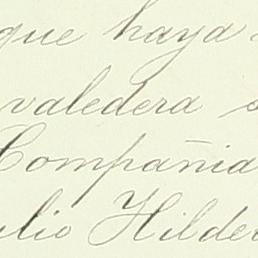 que haya
valedera s
Compañia
ulio Hilder